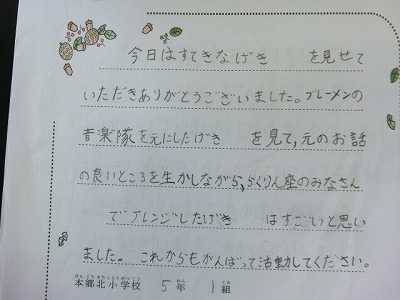 今日はすてきなげき を見せて
いただきありがとうございました。ブレーメンの
音楽隊を元にしたげき を見て,元のお話
の良いところを生かしながら,らくりん座のみなさん
でアレンジしたげき はすごいと思い
ました。これからもがんばって活動してください。
ほんごうきたしょうがっこう ねん くみ
本郷北小学校 5年 1組